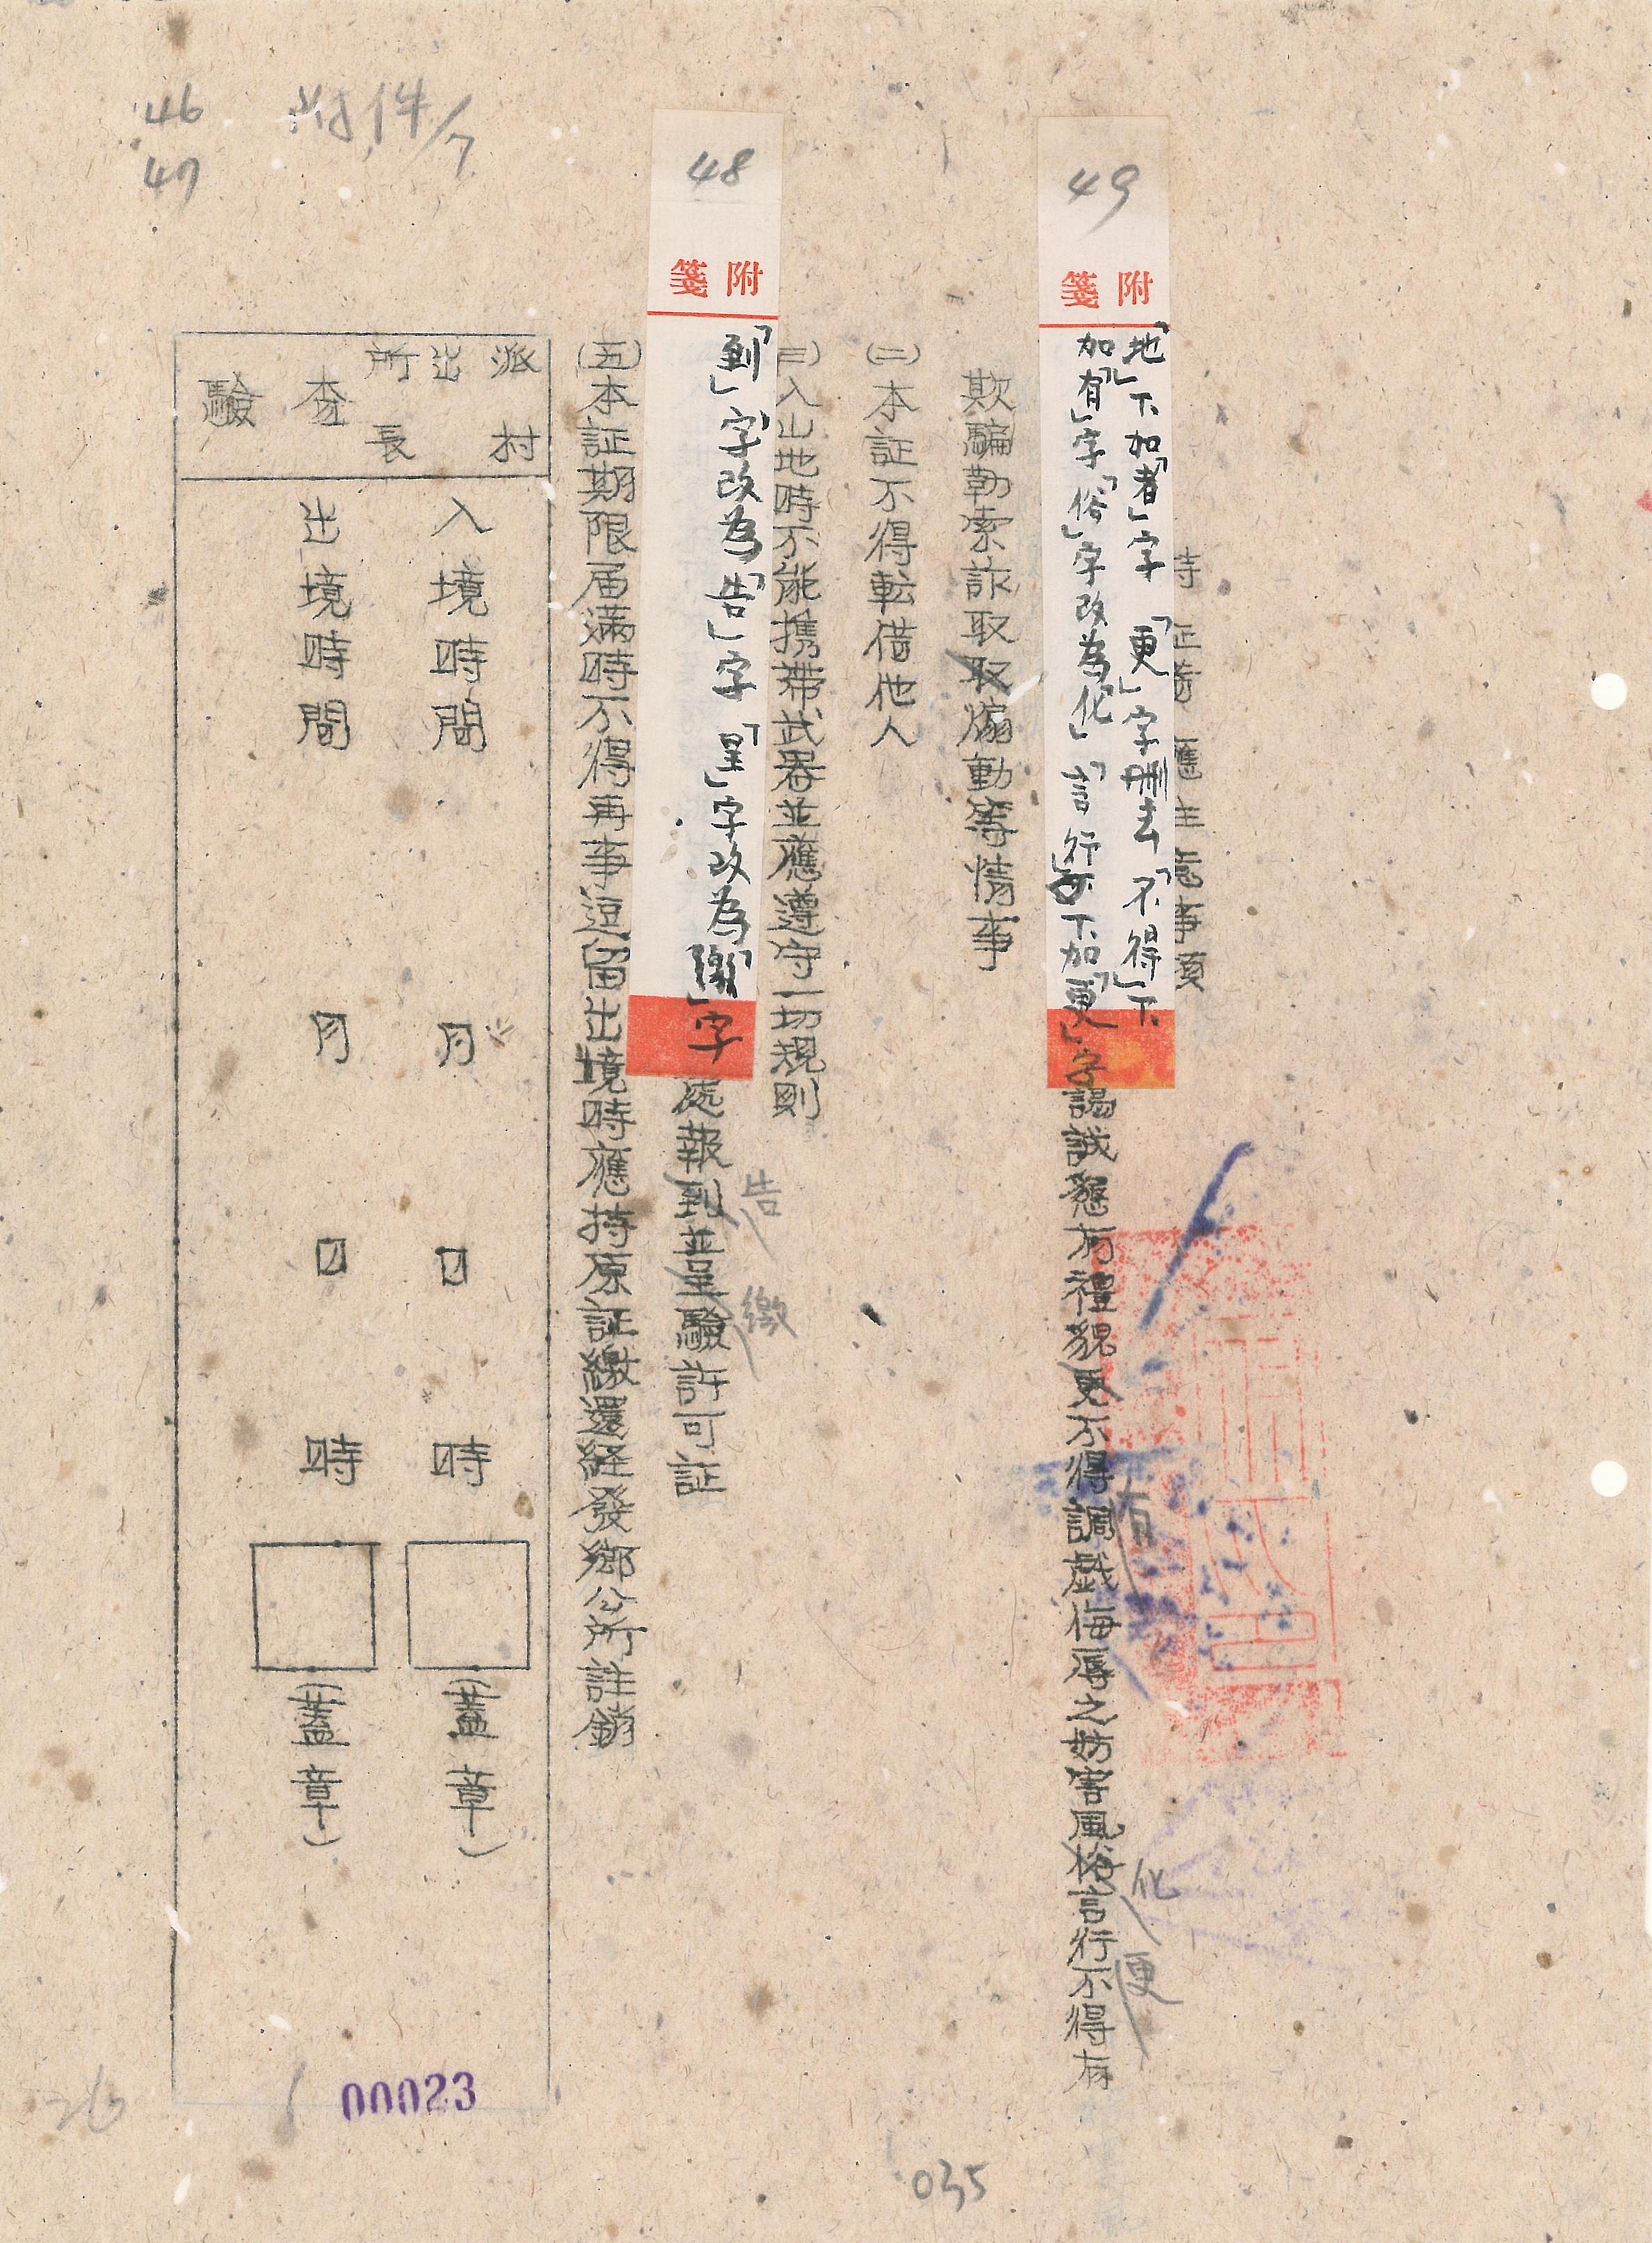 46
47
附件/7
49
附箋
「地」下加「者」字「更」字刪去「不得」下
加「有」字「俗」字改為「化」「言行不」下加「更」字
持証者應注意事項
謁誠懇有禮貌更不得調戲侮辱之妨害風俗言行不得有
有
化
更
欺騙勒索詐取取煽動等情事
(二)本証不得転借他人
(三)入山地時不能携帶武器並應遵守一切規則
48
附箋
「到」字改為「告」字「呈」字改為「繳」字
處報到並呈驗許可証
告
繳
(五)本証期限届滿時不得再事逗留出境時應持原証繳還経發鄉公所註銷
派出所村長查驗
入境時間 月 日 時 (蓋章)
出境時間 月 日 時 (蓋章)
00023
26
035